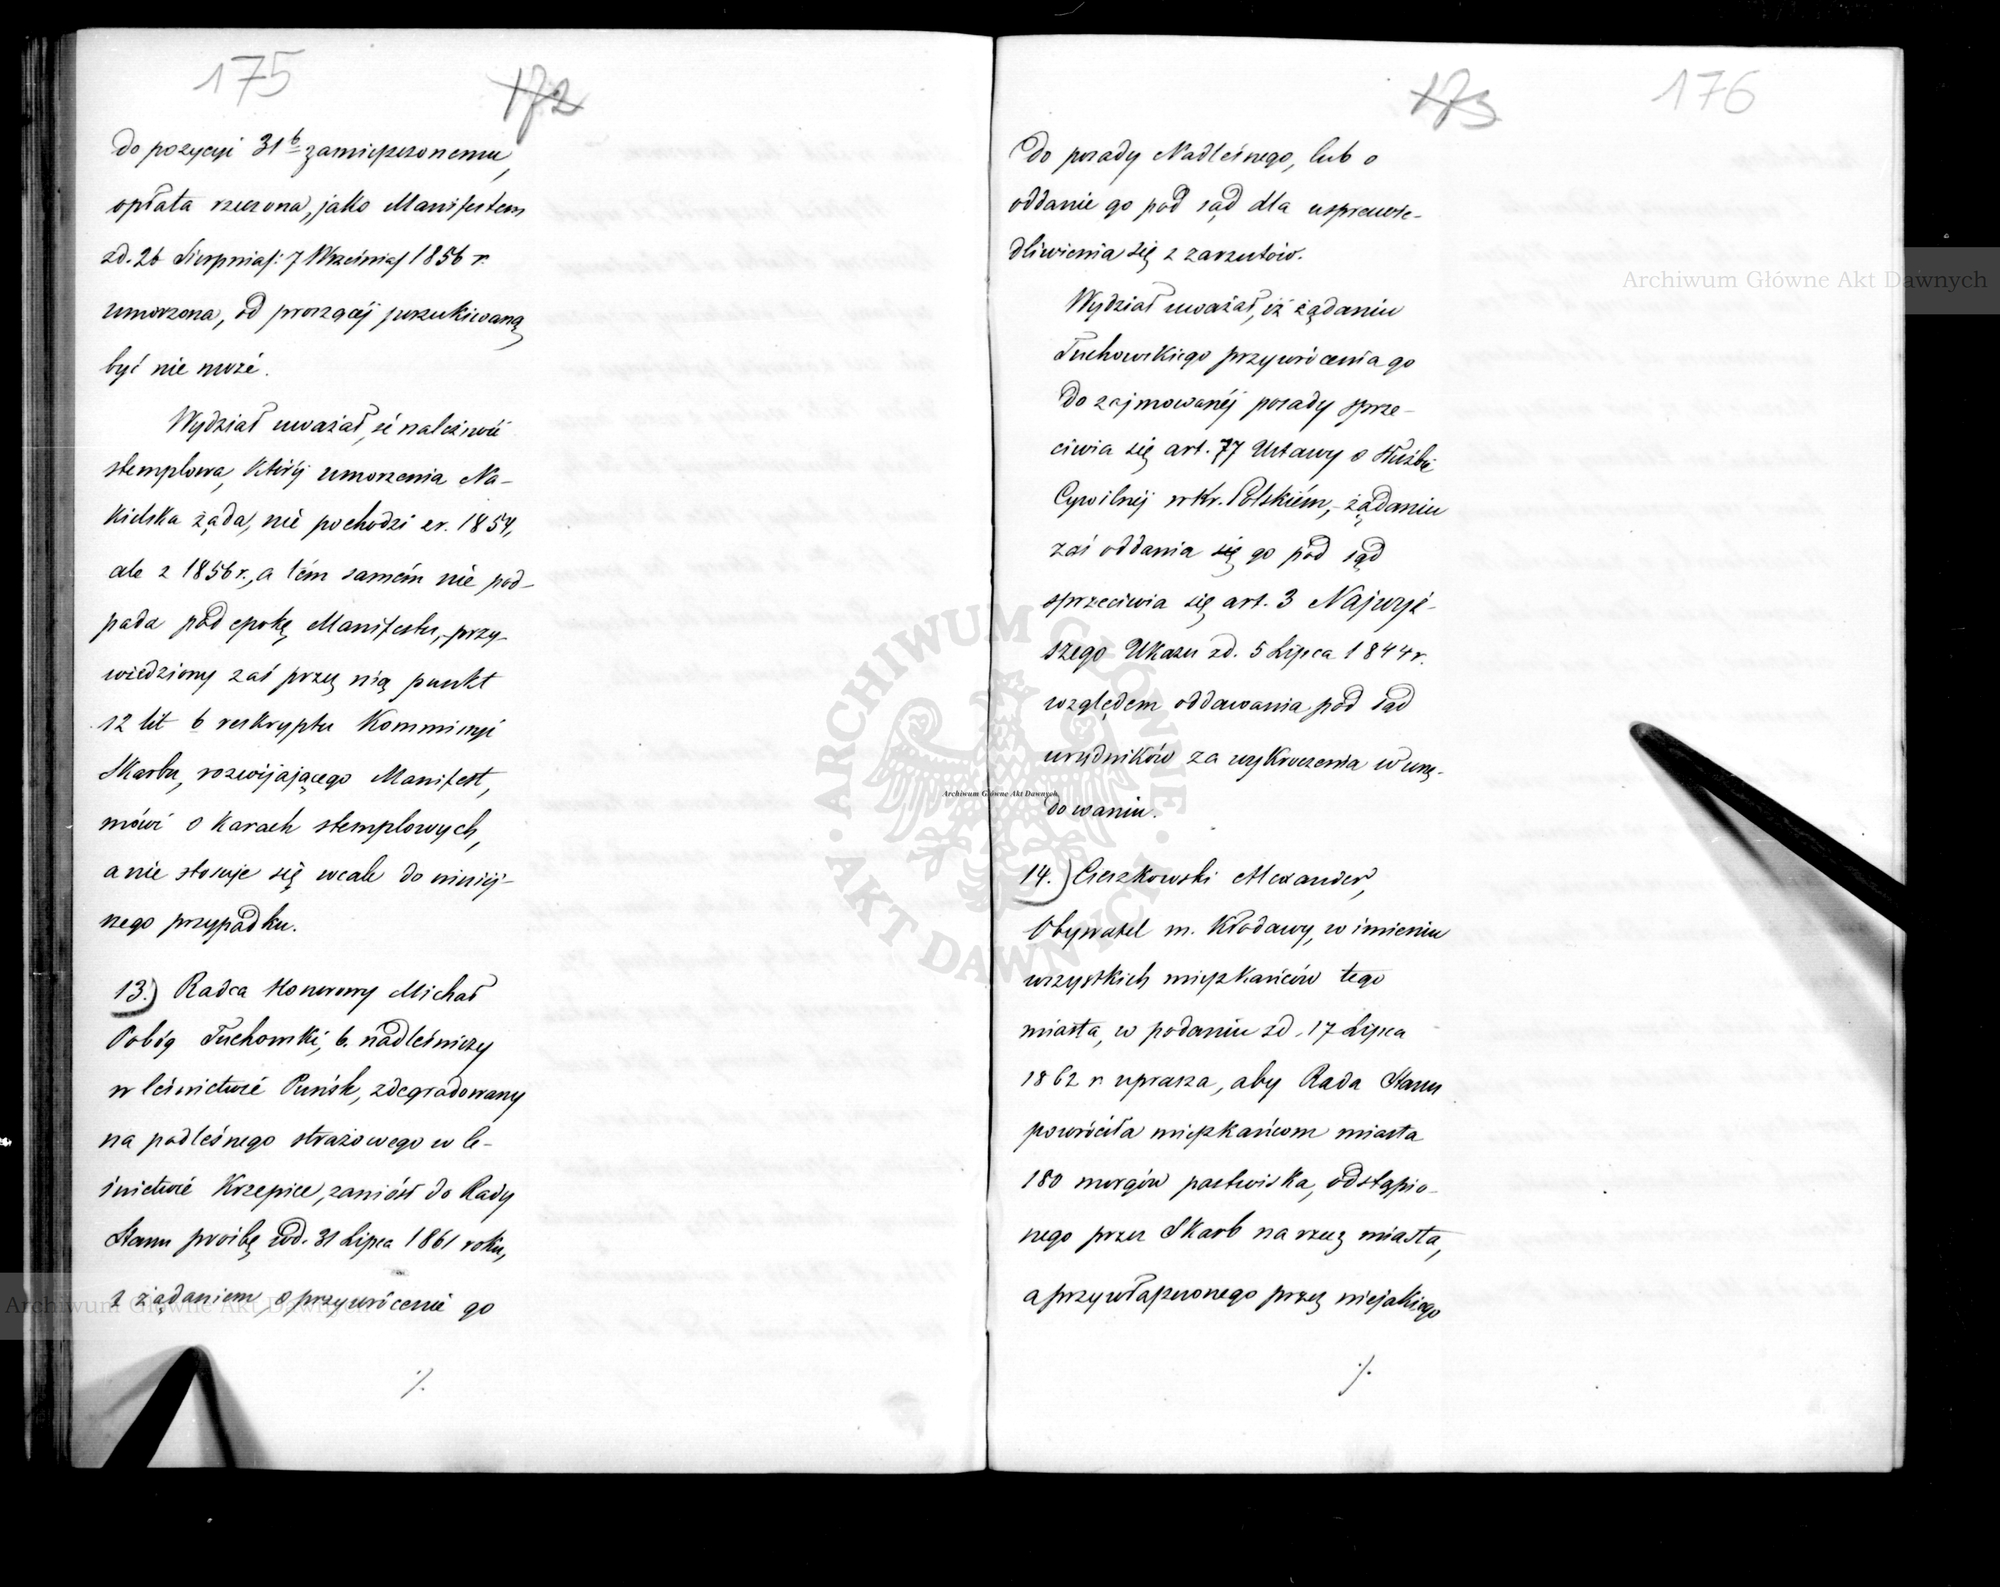 175
172
do pozycyi 31 b zamieszczonemu,
opłata rzeczona, jako Manifestem
zd. 26 Sierpnia /: 7 Września / 1856 r.
umorzona, od proszącéj poszukiwaną
być nie może.
Wydział uważał, że należność
stemplowa, któréj umorzenia Na-
kielska żąda, nie pochodzi z r. 1854,
ale z 1856 r., a tém samém nie pod-
pada pod epokę Manifestu, - przy-
wiedziony zaś przez nią punkt
12 lit b reskryptu Kommissyi
Skarbu, rozwijającego Manifest,
mówi o karach stemplowych,
a nie stosuje się wcale do niniéj-
szego przypadku.
13.) Radca Honorowy Michał
Pobóg Tuchowski, b. nadleśniczy
w leśnictwie Puńsk, zdegradowany
na podleśnego strażowego w le-
śnictwie Krzepice, zaniósł do Rady
Stanu prośbę zd. 31 Lipca 1861 roku,
z żądaniem o przywrócenie go
./.
173
176
do posady Nadleśnego, lub o
oddanie go pod sąd dla usprawie-
dliwienia się z zarzutów.
Wydział uważał, iż żądaniu
Tuchowskiego przywrócenia go
do zajmowanéj posady sprze-
ciwia się art. 77 Ustawy o Służbie
Cywilnéj w Kr. Polskiém, - żądaniu
zaś oddania się go pod sąd
sprzeciwia się art. 3 Najwyż-
szego Ukazu zd. 5 Lipca 1844 r.
względem oddawania pod sąd
urzędników za wykroczenia w urzę-
dowaniu.
14.) Cieszkowski Alexander,
Obywatel m. Kłodawy, w imieniu
wszystkich mieszkańców tego
miasta, w podaniu zd. 17 Lipca
1862 r. uprasza, aby Rada Stanu
powróciła mieszkańcom miasta
180 morgów pastwiska, odstąpio-
nego przez Skarb na rzecz miasta,
a przywłaszczonego przez niejakiego
./.
Archiwum Główne Akt Dawnych
Archiwum Główne Akt Dawnych
Archiwum Główne Akt Dawnych
ARCHIWUM GŁÓWNE
AKT DAWNYCH